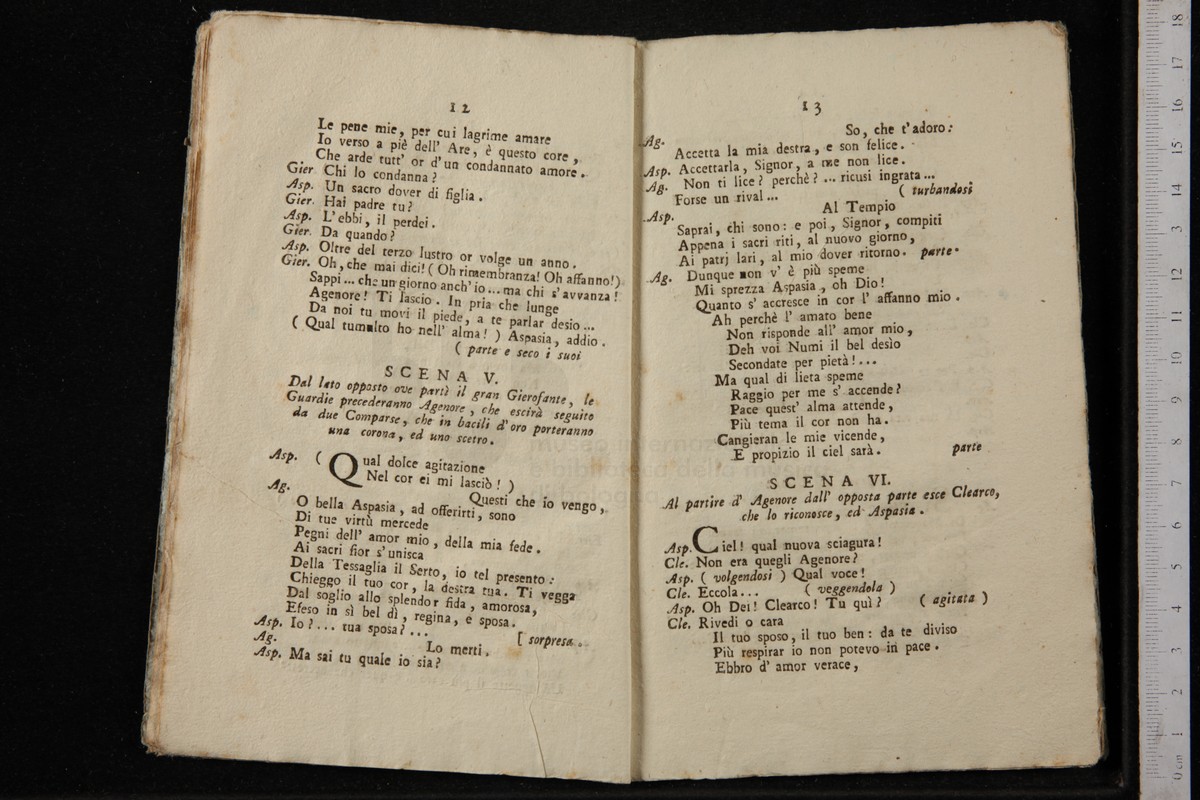 12
Le pene mie, per cui lagrime amare
Io verso a piè dell' Are, è questo core,
Che arde tutt' or d'un condannato amore.
Gier. Chi lo condanna?
Asp. Un sacro dover di figlia.
Gier. Hai padre tu?
Asp. L'ebbi, il perdei.
Gier. Da quando?
Asp. Oltre del terzo lustro or volge un anno.
Gier. Oh, che mai dici! ( Oh rimembranza! Oh affanno!)
Sappi ... che un giorno anch' io ... ma chi s'avvanza!
Agenore! Ti lascio. In pria che lunge
Da noi tu movi il piede, a te parlar desio ...
( Qual tumulto ho nell' alma! ) Aspasia, addio.
( parte e seco i suoi
SCENA V.
Dal lato opposto ove partì il gran Gierofante, le
Guardie precederanno Agenore, che escirà seguito
da due Comparse, che in bacili d'oro porteranno
una corona, ed uno scetro.
Asp. ( Qual dolce agitazione
Nel cor ei mi lasciò! )
Ag. Questi che io vengo,
O bella Aspasia, ad offerirti, sono
Di tue virtù mercede
Pegni dell' amor mio, della mia fede.
Ai sacri fior s'unisca
Della Tessaglia il Serto, io tel presento:
Chieggo il tuo cor, la destra tua. Ti vegga
Dal soglio allo splendor fida, amorosa,
Efeso in sì bel dì, regina, e sposa.
Asp. Io? ... tua sposa? ... [ sorpresa.
Ag. Lo merti.
Asp. Ma sai tu quale io sia?
13
Ag. So, che t'adoro:
Accetta la mia destra, e son felice.
Asp. Accettarla, Signor, a me non lice.
Ag. Non ti lice? perchè? ... ricusi ingrata ...
Forse un rival ... ( turbandosi
Asp. Al Tempio
Saprai, chi sono: e poi, Signor, compiti
Appena i sacri riti, al nuovo giorno,
Ai patrj lari, al mio dover ritorno. parte.
Ag. Dunque non v' è più speme
Mi sprezza Aspasia, oh Dio!
Quanto s' accresce in cor l' affanno mio.
Ah perchè l' amato bene
Non risponde all' amor mio,
Deh voi Numi il bel desìo
Secondate per pietà! ...
Ma qual di lieta speme
Raggio per me s' accende?
Pace quest' alma attende,
Più tema il cor non ha.
Cangieran le mie vicende,
E propizio il ciel sarà. parte
SCENA VI.
Al partire d' Agenore dall' opposta parte esce Clearco,
che lo riconosce, ed Aspasia.
Asp. Ciel! qual nuova sciagura!
Cle. Non era quegli Agenore?
Asp. ( volgendosi ) Qual voce!
Cle. Eccola ... ( veggendola )
Asp. Oh Dei! Clearco! Tu quì? ( agitata )
Cle. Rivedi o cara
Il tuo sposo, il tuo ben: da te diviso
Più respirar io non potevo in pace.
Ebbro d' amor verace,
museo internaz
e biblioteca della musica
0 cm 1 2 3 4 5 6 7 8 9 10 11 12 13 14 15 16 17 18